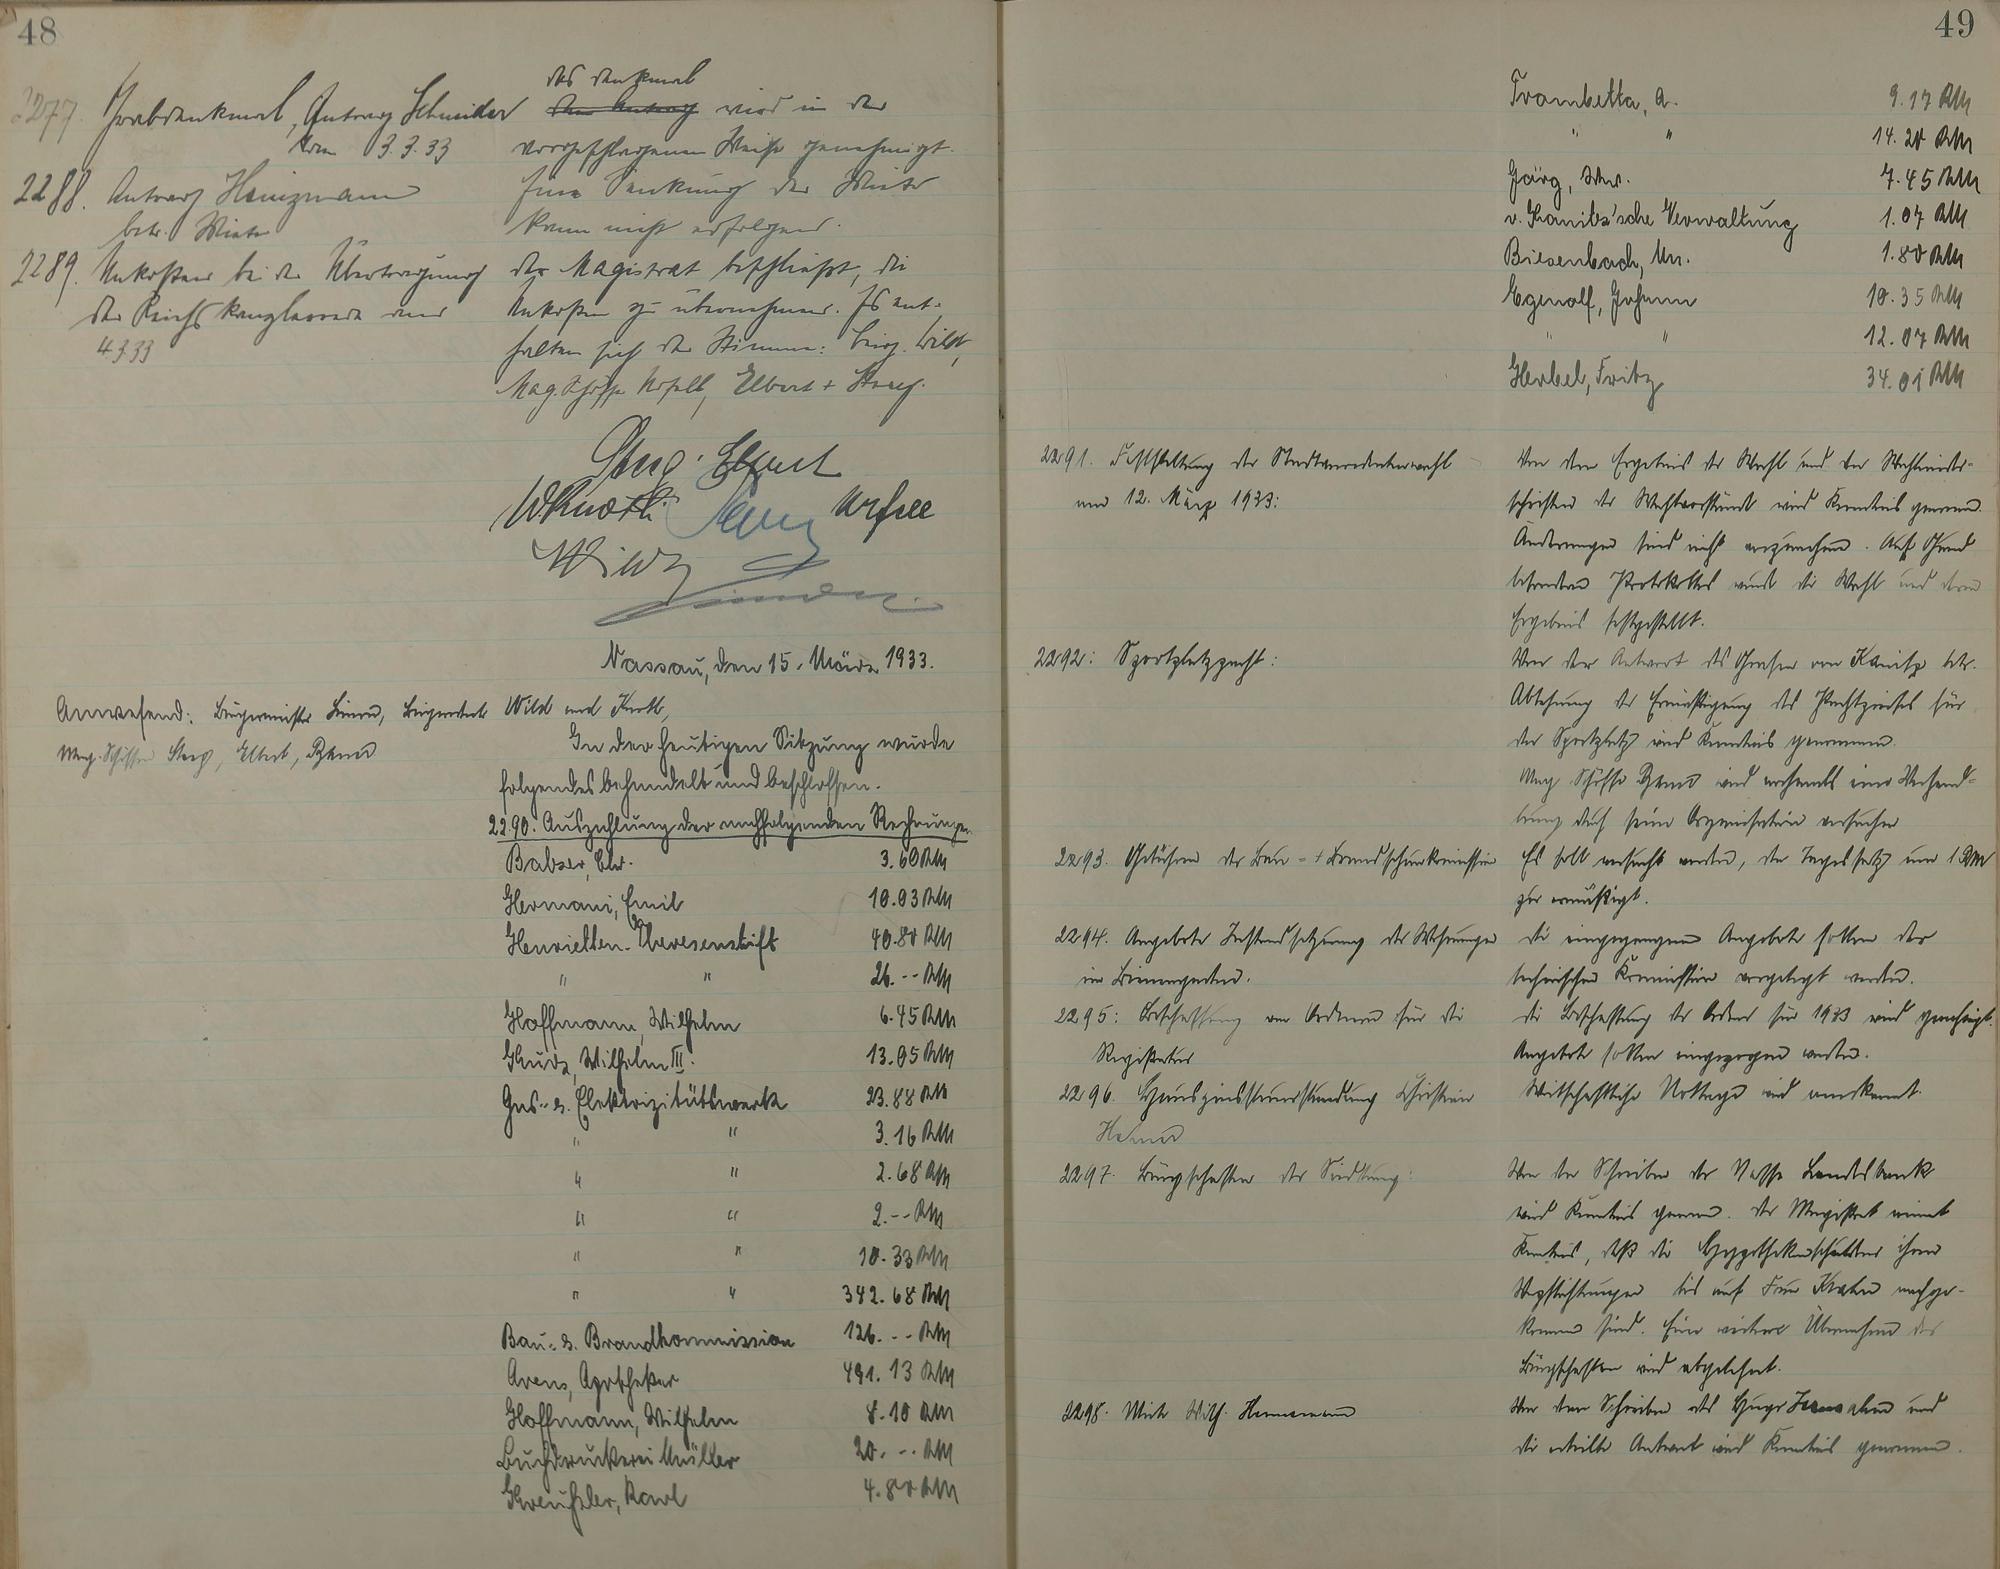 48
2277. Grabdenkmal, Antrag Schneider
vom 3.3.33
das Denkmal
Der Antrag wird in der
vorgeschlagenen Weise genehmigt.
2288. Antrag Heinzmann
betr. Miete
Eine Senkung der Miete
kann nicht erfolgen.
2289. Unkosten bei der Übertragung
der Reichskanzlerrede vom
4.3.33
Der Magistrat beschließt, die
Unkosten zu übernehmen. Es ent-
halten sich der Stimme: Beig. Wild,
Mag. Schöffe Unfell, Elbert +
Elbert
WKnoth
Wild
Nassau, den 15. März 1933.
Anwesend: Bürgermeister Beigeordnete Wild und Knoth,
Mag. Schöffen Elbert,
In der heutigen Sitzung wurde
folgendes behandelt und beschlossen.
2290. Auszahlung der nachfolgenden Rechnungen
Babser, Chr. 3.60 RM
Hermani, Emil 10.03 RM
Henrietten-Theresenstift 40.80 RM
" " 26.-- RM
Hoffmann, Wilhelm 6.45 RM
Wilhelm III. 13.05 RM
Gas- u. Elektrizitätswerk 23.88 RM
" " 3.16 RM
" " 2.68 RM
" " 2.-- RM
" " 10.33 RM
" " 342.68 RM
Bau- u. Brandkommission 126.-- RM
Arens, Apotheker 491.13 RM
Hoffmann, Wilhelm 8.10 RM
Buchdruckerei Müller 20.-- RM
Kreußler, Karl 4.80 RM
49
Trombetta, A. 9.17 RM
" " 14.20 RM
Görg, Ww. 7.45 RM
v. Kanitz'sche Verwaltung 1.07 RM
Biesenbach, Un. 1.80 RM
Egenolf, Johann 10.35 RM
" " 12.07 RM
Herbel, Fritz 34.01 RM
2291. Feststellung der Stadtverordnetenwahl
vom 12. März 1933:
Von dem Ergebnis der Wahl und der Wahlnieder-
schriften der Wahlvorstände wird Kenntnis genommen.
Änderungen sind nicht vorzunehmen. Auf Grund
besonderen Protokolles wird die Wahl und deren
Ergebnis festgestellt.
2292: Sportplatzpacht:
Von der Antwort des Grafen von Kanitz betr.
Ablehnung der Ermäßigung des Pachtpreises für
den Sportplatz wird Kenntnis genommen.
Mag. Schöffe wird nochmals eine Verhand-
lung durch seine Organisation versuchen
2293. Gebühren der Bau- + Brandschaukommission
Es soll versucht werden, den Tagessatz um 1 RM
zu ermäßigt.
2294. Angebote Instandsetzung der Wohnungen
im
Die eingegangenen Angebote sollen der
technischen Kommission vorgelegt werden.
2295: Beschaffung von Ordnern für die
Registratur
Die Beschaffung der Ordner für 1933 wird genehmigt.
Angebote sollen eingezogen werden.
2296. Hauszinssteuerstundung Christian
Heimer
Wirtschaftliche Notlage wird anerkannt.
2297. Bürgschaften der Siedlung:
Von dem Schreiben der Nass. Landesbank
wird Kenntnis genommen. Der Magistrat nimmt
Kenntnis, daß die Hypothekenschuldner ihren
Verpflichtungen bis auf Frau nachge-
kommen sind. Eine weitere Übernahme der
Bürgschaften wird abgelehnt.
2298. Miete Wilh.
Von dem Schreiben des Hugo und
die erteilte Antwort wird Kenntnis genommen.